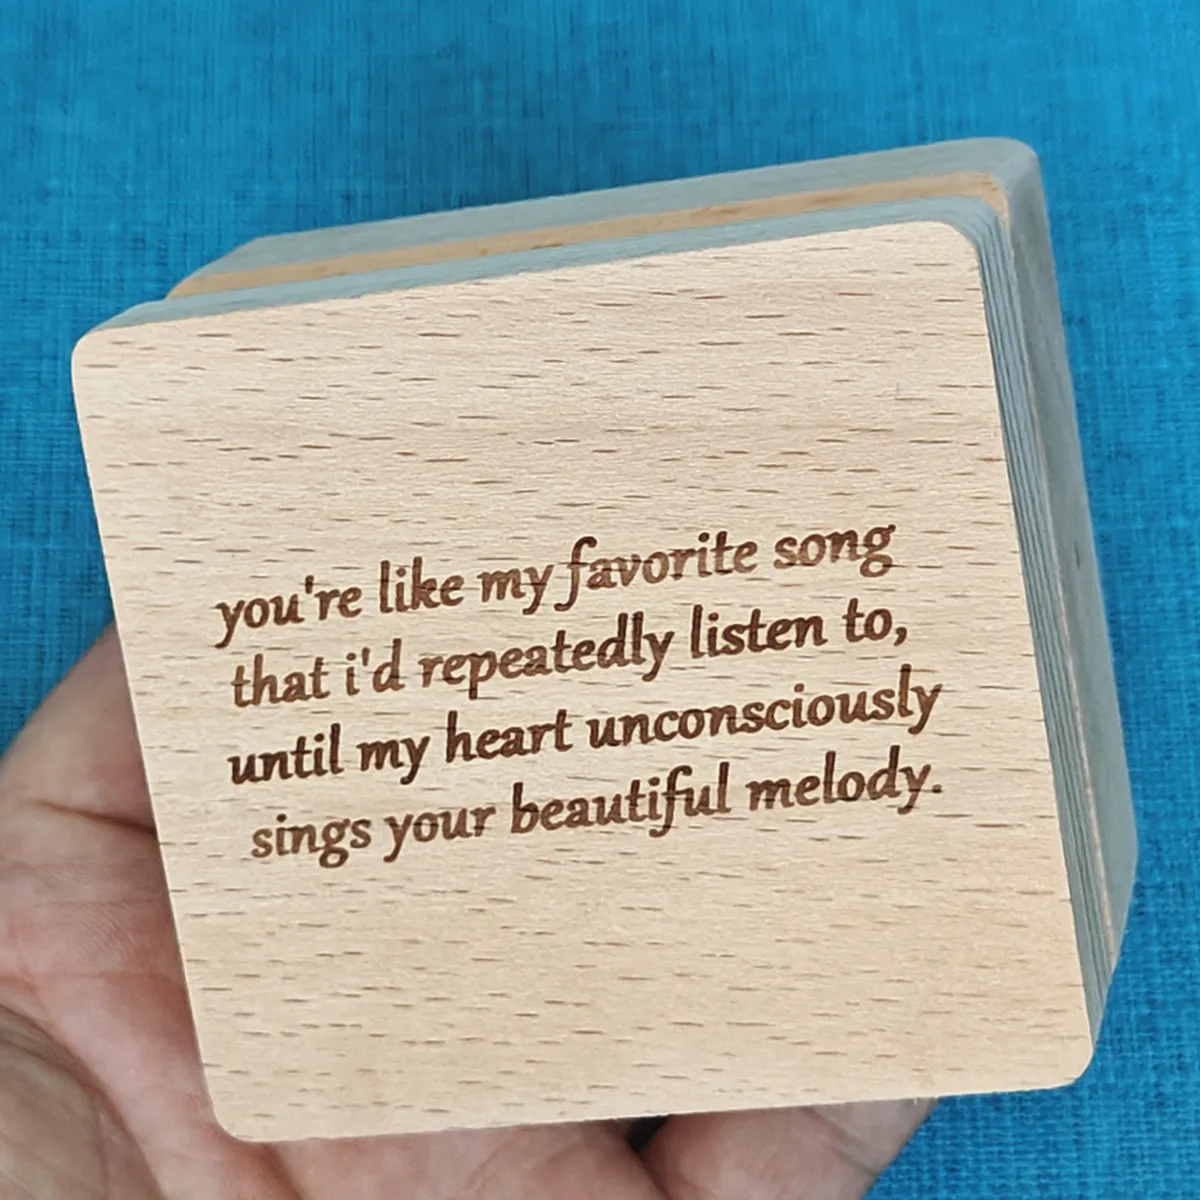 you're like my favorite song
that i'd repeatedly listen to,
until my heart unconsciously
sings your beautiful melody.